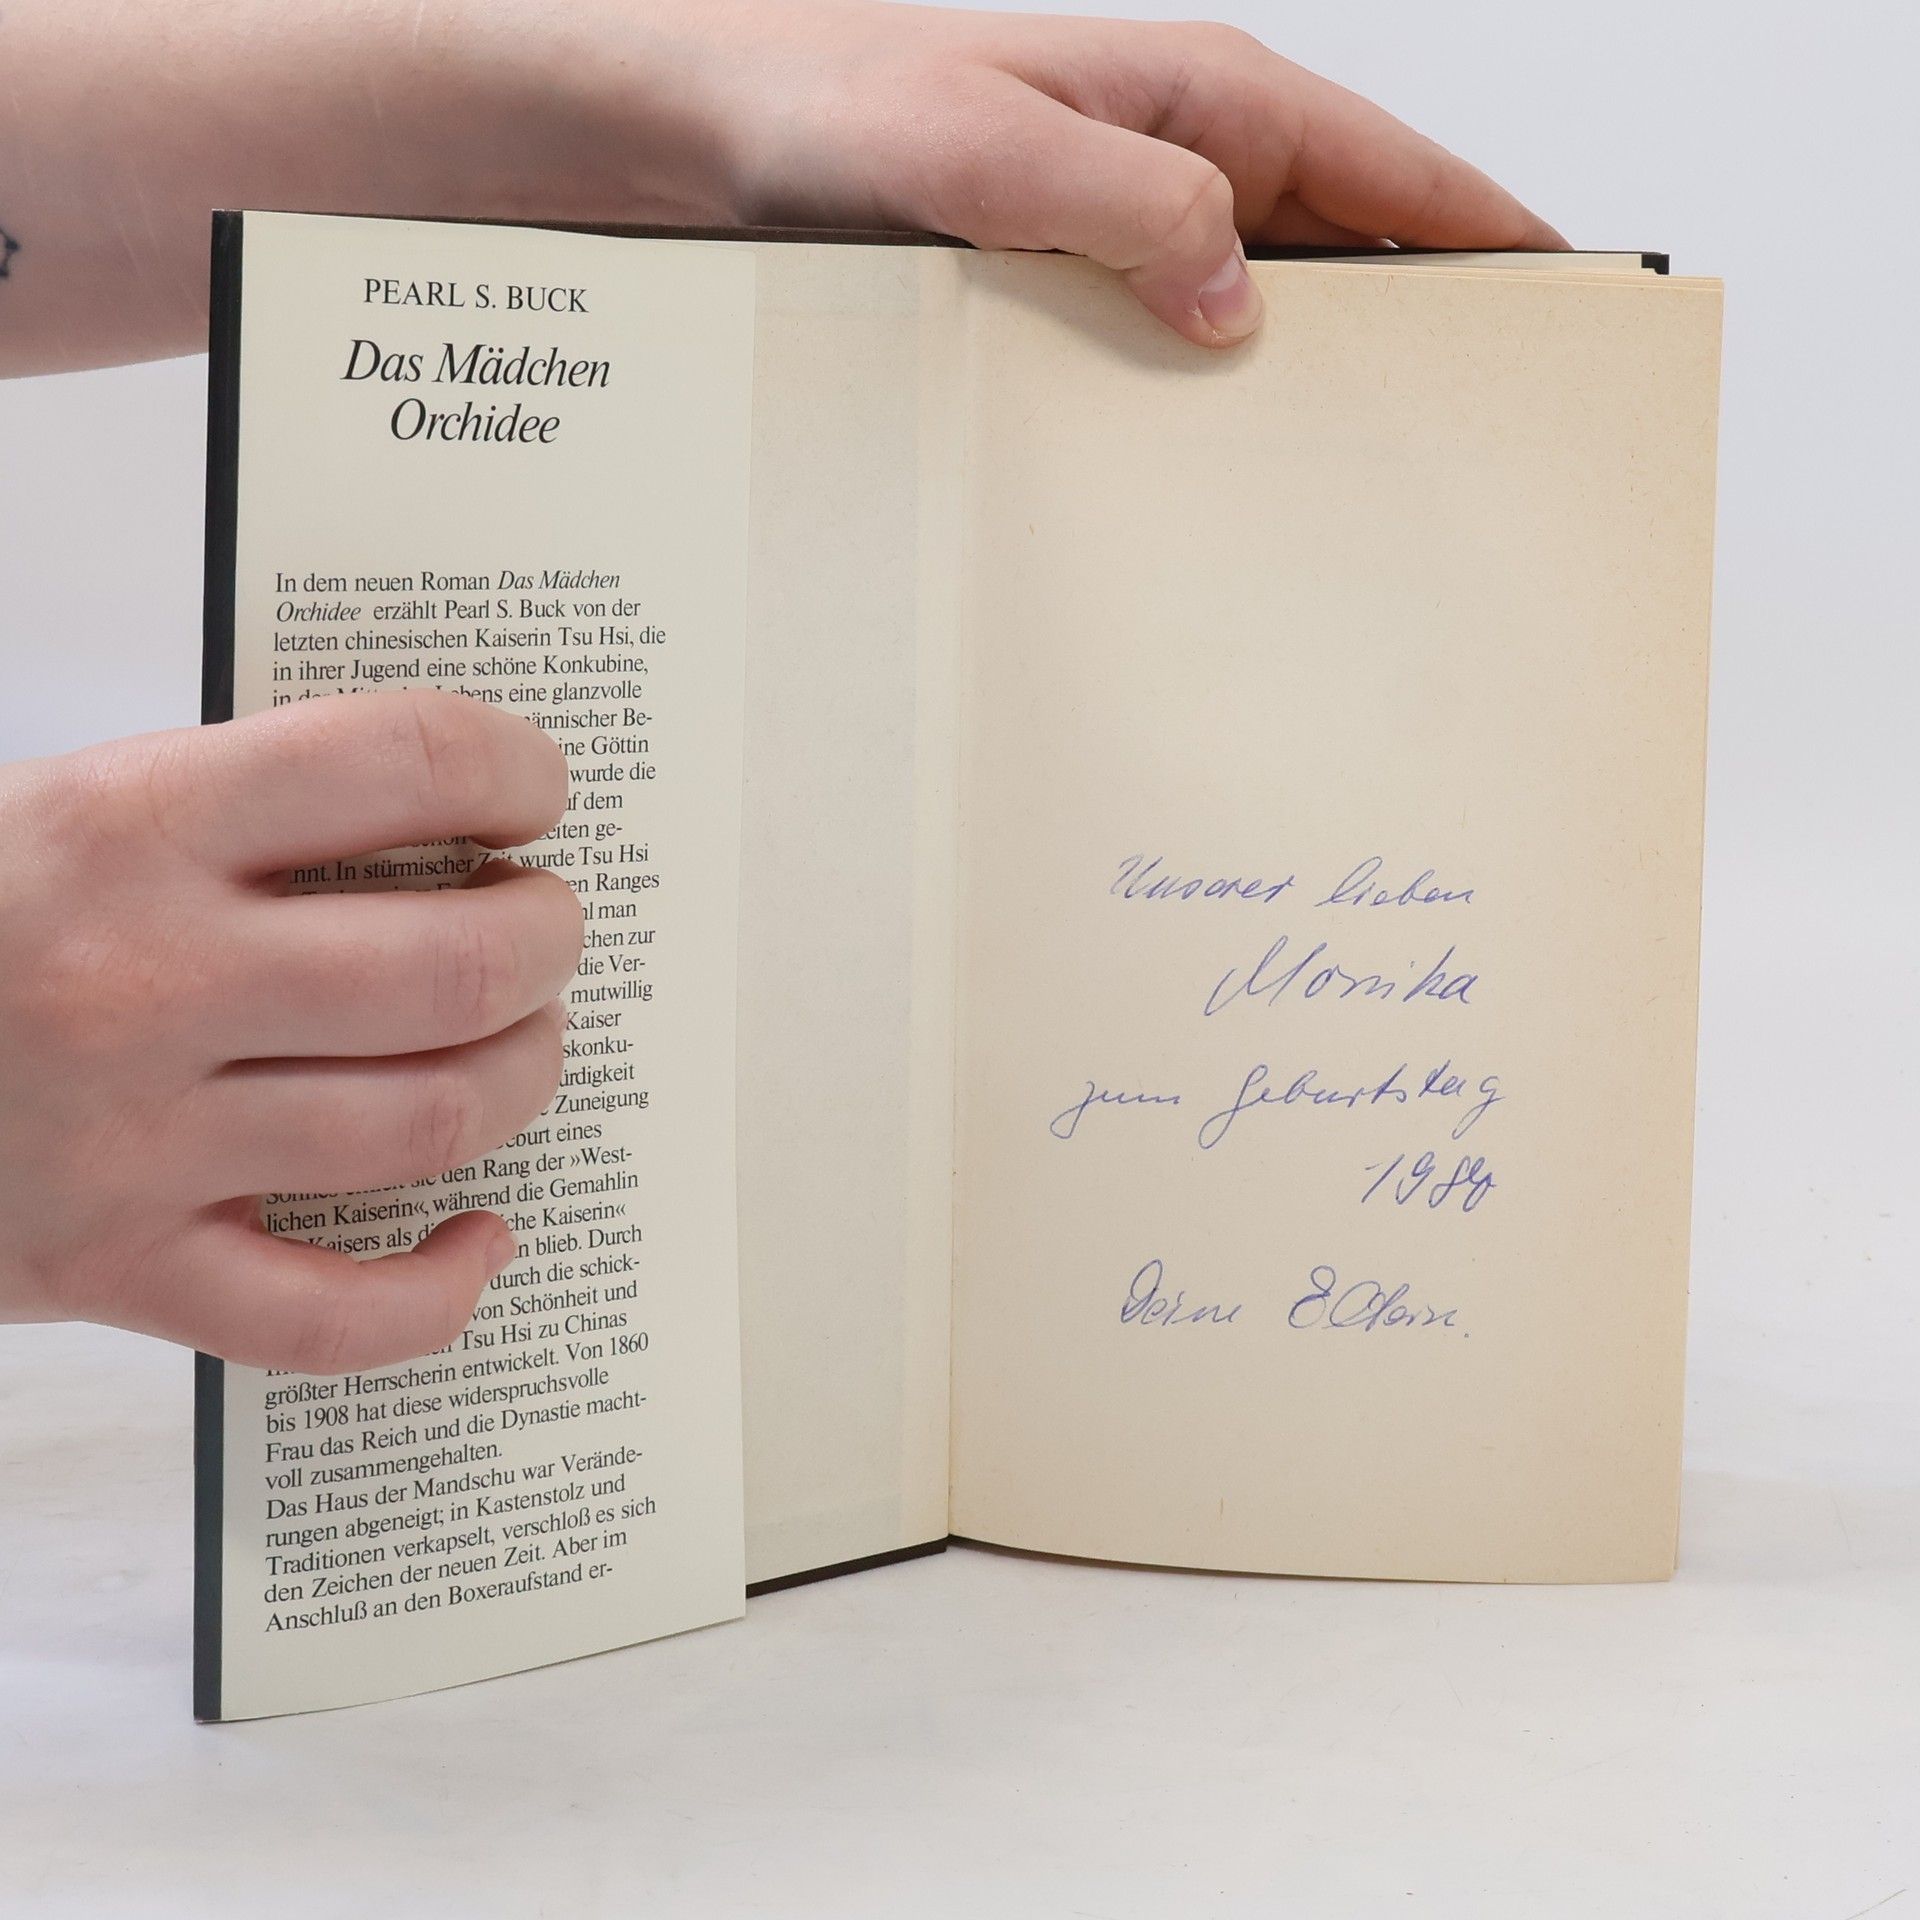 PEARL S. BUCK
Das Mädchen
Orchidee
In dem neuen Roman Das Mädchen
Orchidee erzählt Pearl S. Buck von der
letzten chinesischen Kaiserin Tsu Hsi, die
in ihrer Jugend eine schöne Konkubine,
in Lebens eine glanzvolle
männischer Be-
Göttin
wurde die
dem
ge-
In stürmischer Zeit wurde Tsu Hsi
Ranges
man
zur
die Ver-
mutwillig
Kaiser
Zuneigung
eines
den Rang der »West-
lichen Kaiserin«, während die Gemahlin
Kaisers als Kaiserin«
blieb. Durch
durch die schick-
von Schönheit und
Tsu Hsi zu Chinas
größter Herrscherin entwickelt. Von 1860
bis 1908 hat diese widerspruchsvolle
Frau das Reich und die Dynastie macht-
voll zusammengehalten.
Das Haus der Mandschu war Verände-
rungen abgeneigt; in Kastenstolz und
Traditionen verkapselt, verschloß es sich
den Zeichen der neuen Zeit. Aber im
Anschluß an den Boxeraufstand er-
Unserer lieben
Monika
zum Geburtstag
Deine Eltern.